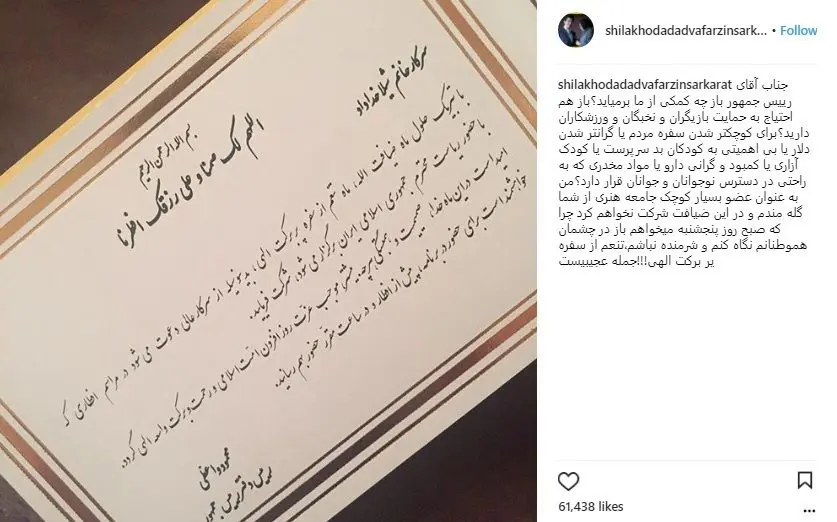 بسم الله الرحمن الرحیم
اللهم لک صمنا و علی رزقک افطرنا
سرکار خانم شیلا خداداد
با تبریک حلول ماه ضیافت الله، ماه تنعم از سفره پر برکت الهی، بدینوسیله از سرکار عالی دعوت می شود در مراسم افطاری که
با حضور ریاست محترم جمهوری اسلامی ایران برگزار می شود، شرکت فرمایید.
امید است در این ماه خدا، صمیمیت و همبستگی هر چه بیشتر، موجب عزت روز افزون امت اسلامی و رحمت و برکت واسعه الهی گردد.
خواهشمند است برای حضور در برنامه، پیش از افطار و در ساعت مقرر حضور بهم رسانید.
محمود واعظی
رییس دفتر رییس جمهور
shilakhodadadvafarzinsark... • Follow
shilakhodadadvafarzinsarkarat جناب آقای
رییس جمهور باز چه کمکی از ما برمیاید؟باز هم
احتیاج به حمایت بازیگران و نخبگان و ورزشکاران
دارید؟برای کوچکتر شدن سفره مردم یا گرانتر شدن
دلار یا بی اهمیتی به کودکان بد سرپرست یا کودک
آزاری یا کمبود و گرانی دارو یا مواد مخدری که به
راحتی در دسترس نوجوانان و جوانان قرار دارد؟من
به عنوان عضو بسیار کوچک جامعه هنری از شما
گله مندم و در این ضیافت شرکت نخواهم کرد چرا
که صبح روز پنجشنبه میخواهم باز در چشمان
هموطنانم نگاه کنم و شرمنده نباشم،تنعم از سفره
پر برکت الهی!!!جمله عجیبیست
61,438 likes